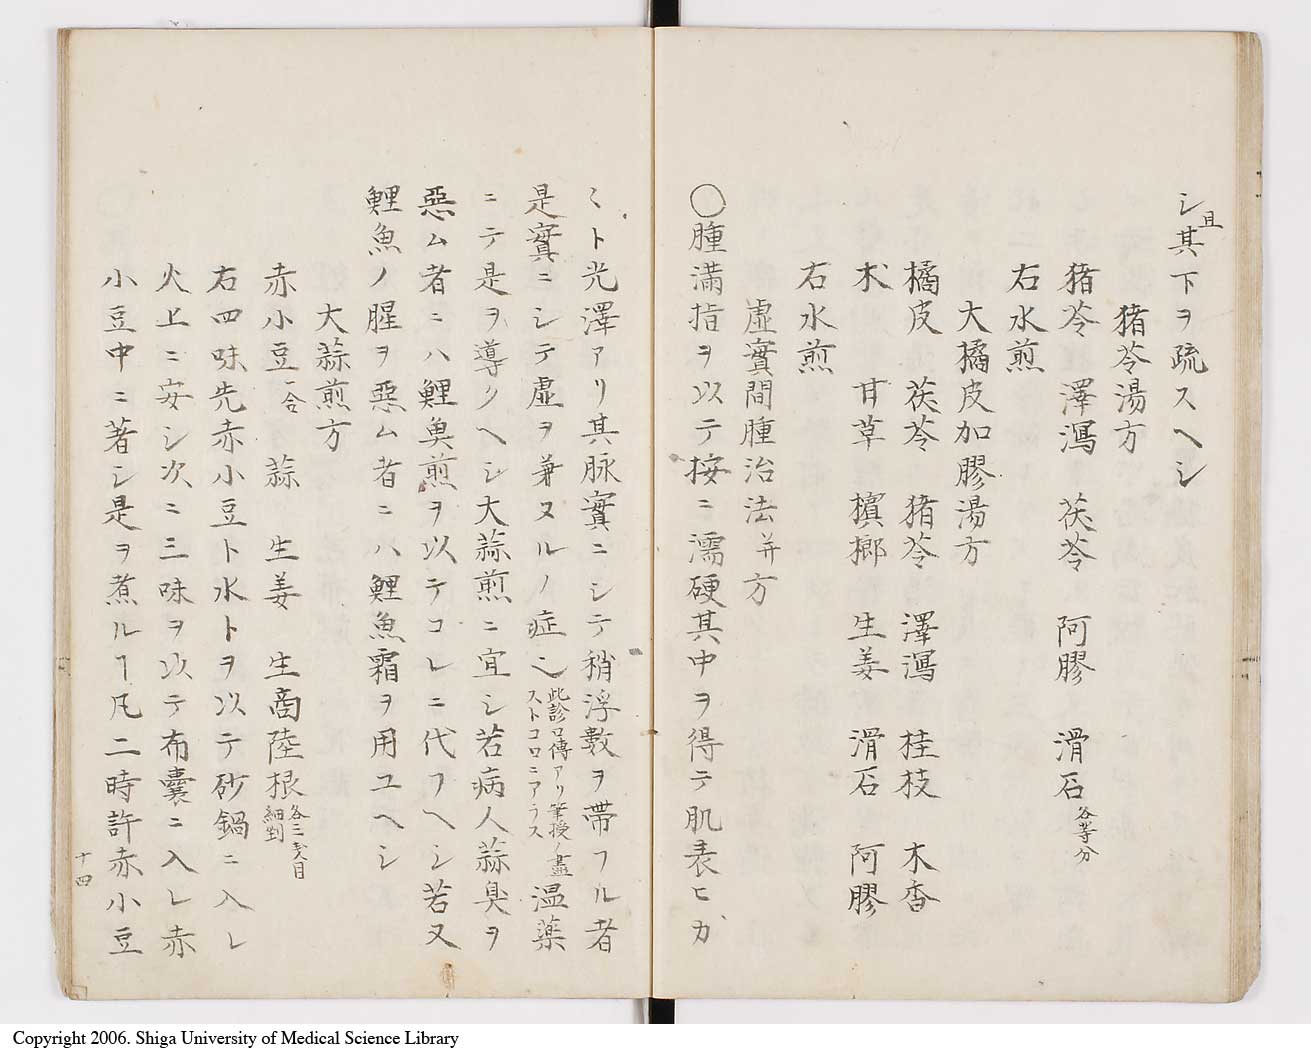 シ且其下ヲ疏スヘシ
猪苓湯方
猪苓 澤瀉 茯苓 阿膠 滑石各等分
右水煎
大橘皮加膠湯方
橘皮 茯苓 猪苓 澤瀉 桂枝 木香
朮 甘草 檳榔 生姜 滑石 阿膠
右水煎
虚實間腫治法并方
〇腫満指ヲ以テ按ニ濡硬其中ヲ得テ肌表ヒカ
〻ト光澤アリ其脉實ニシテ稍浮數ヲ帶フル者
是實ニシテ虚ヲ兼ヌルノ症也此診口傳アリ筆授ノ盡ストコロニアラス温藥
ニテ是ヲ導クヘシ大蒜煎ニ宜シ若病人蒜臭ヲ
惡ム者ニハ鯉魚煎ヲ以テコレニ代フヘシ若又
鯉魚ノ腥ヲ惡ム者ニハ鯉魚霜ヲ用ユヘシ
大蒜煎方
赤小豆一合 蒜 生姜 生商陸根各三戔目細剉
右四味先赤小豆ト水トヲ以テ砂鍋ニ入レ
火上ニ安シ次ニ三味ヲ以テ布嚢ニ入レ赤
小豆中ニ著シ是ヲ煮ルヿ凡二時許赤小豆
十四
Copyright 2006. Shiga University of Medical Science Library